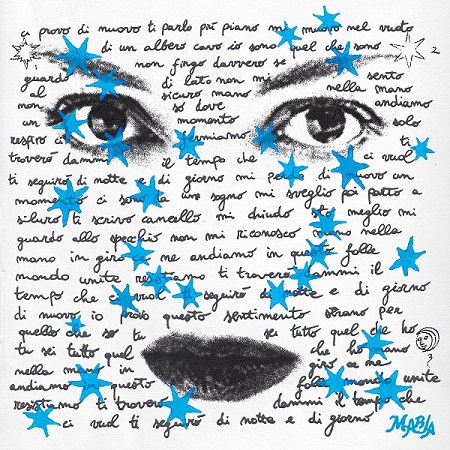 ci provo di nuovo ti parlo più piano mi muovo nel vuoto
di un albero cavo io sono quel che sono
non fingo davvero se
guardo di lato non mi sento
al sicuro mano nella mano
non so dove andiamo
un momento solo
respiro ci
troverò dammi il tempo che ci vuol
ti seguirò di notte e di giorno mi perdo di nuovo un
momento ci sono la una sogno mi sveglio poi parto a
siluro ti scrivo cancello mi chiudo sto meglio mi
guardo allo specchio non mi riconosco mano nella
mano in giro ce ne andiamo in questo folle
mondo unite resistiamo ti troverò dammi il
tempo che ci vuol ti seguirò di notte e di giorno
di nuovo io provo questo sentimento strano per
quello che so tu sei tutto quel che ho
tu sei tutto quel che ho mano
nella mano in giro ce ne
andiamo in questo folle mondo unite
resistiamo ti troverò dammi il tempo che
ci vuol ti seguirò di notte e di giorno
MABLA